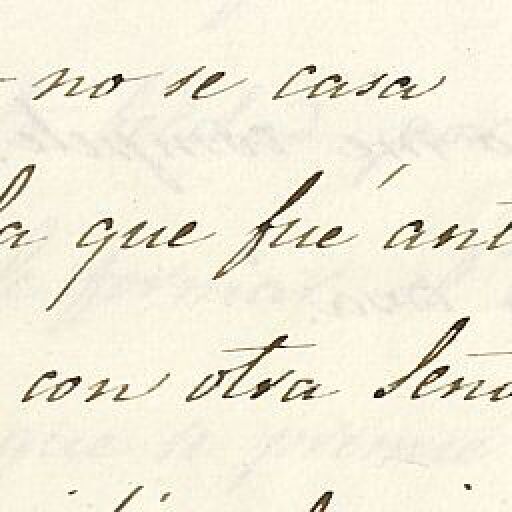 no se casa
la que fué ant
con otra Seño